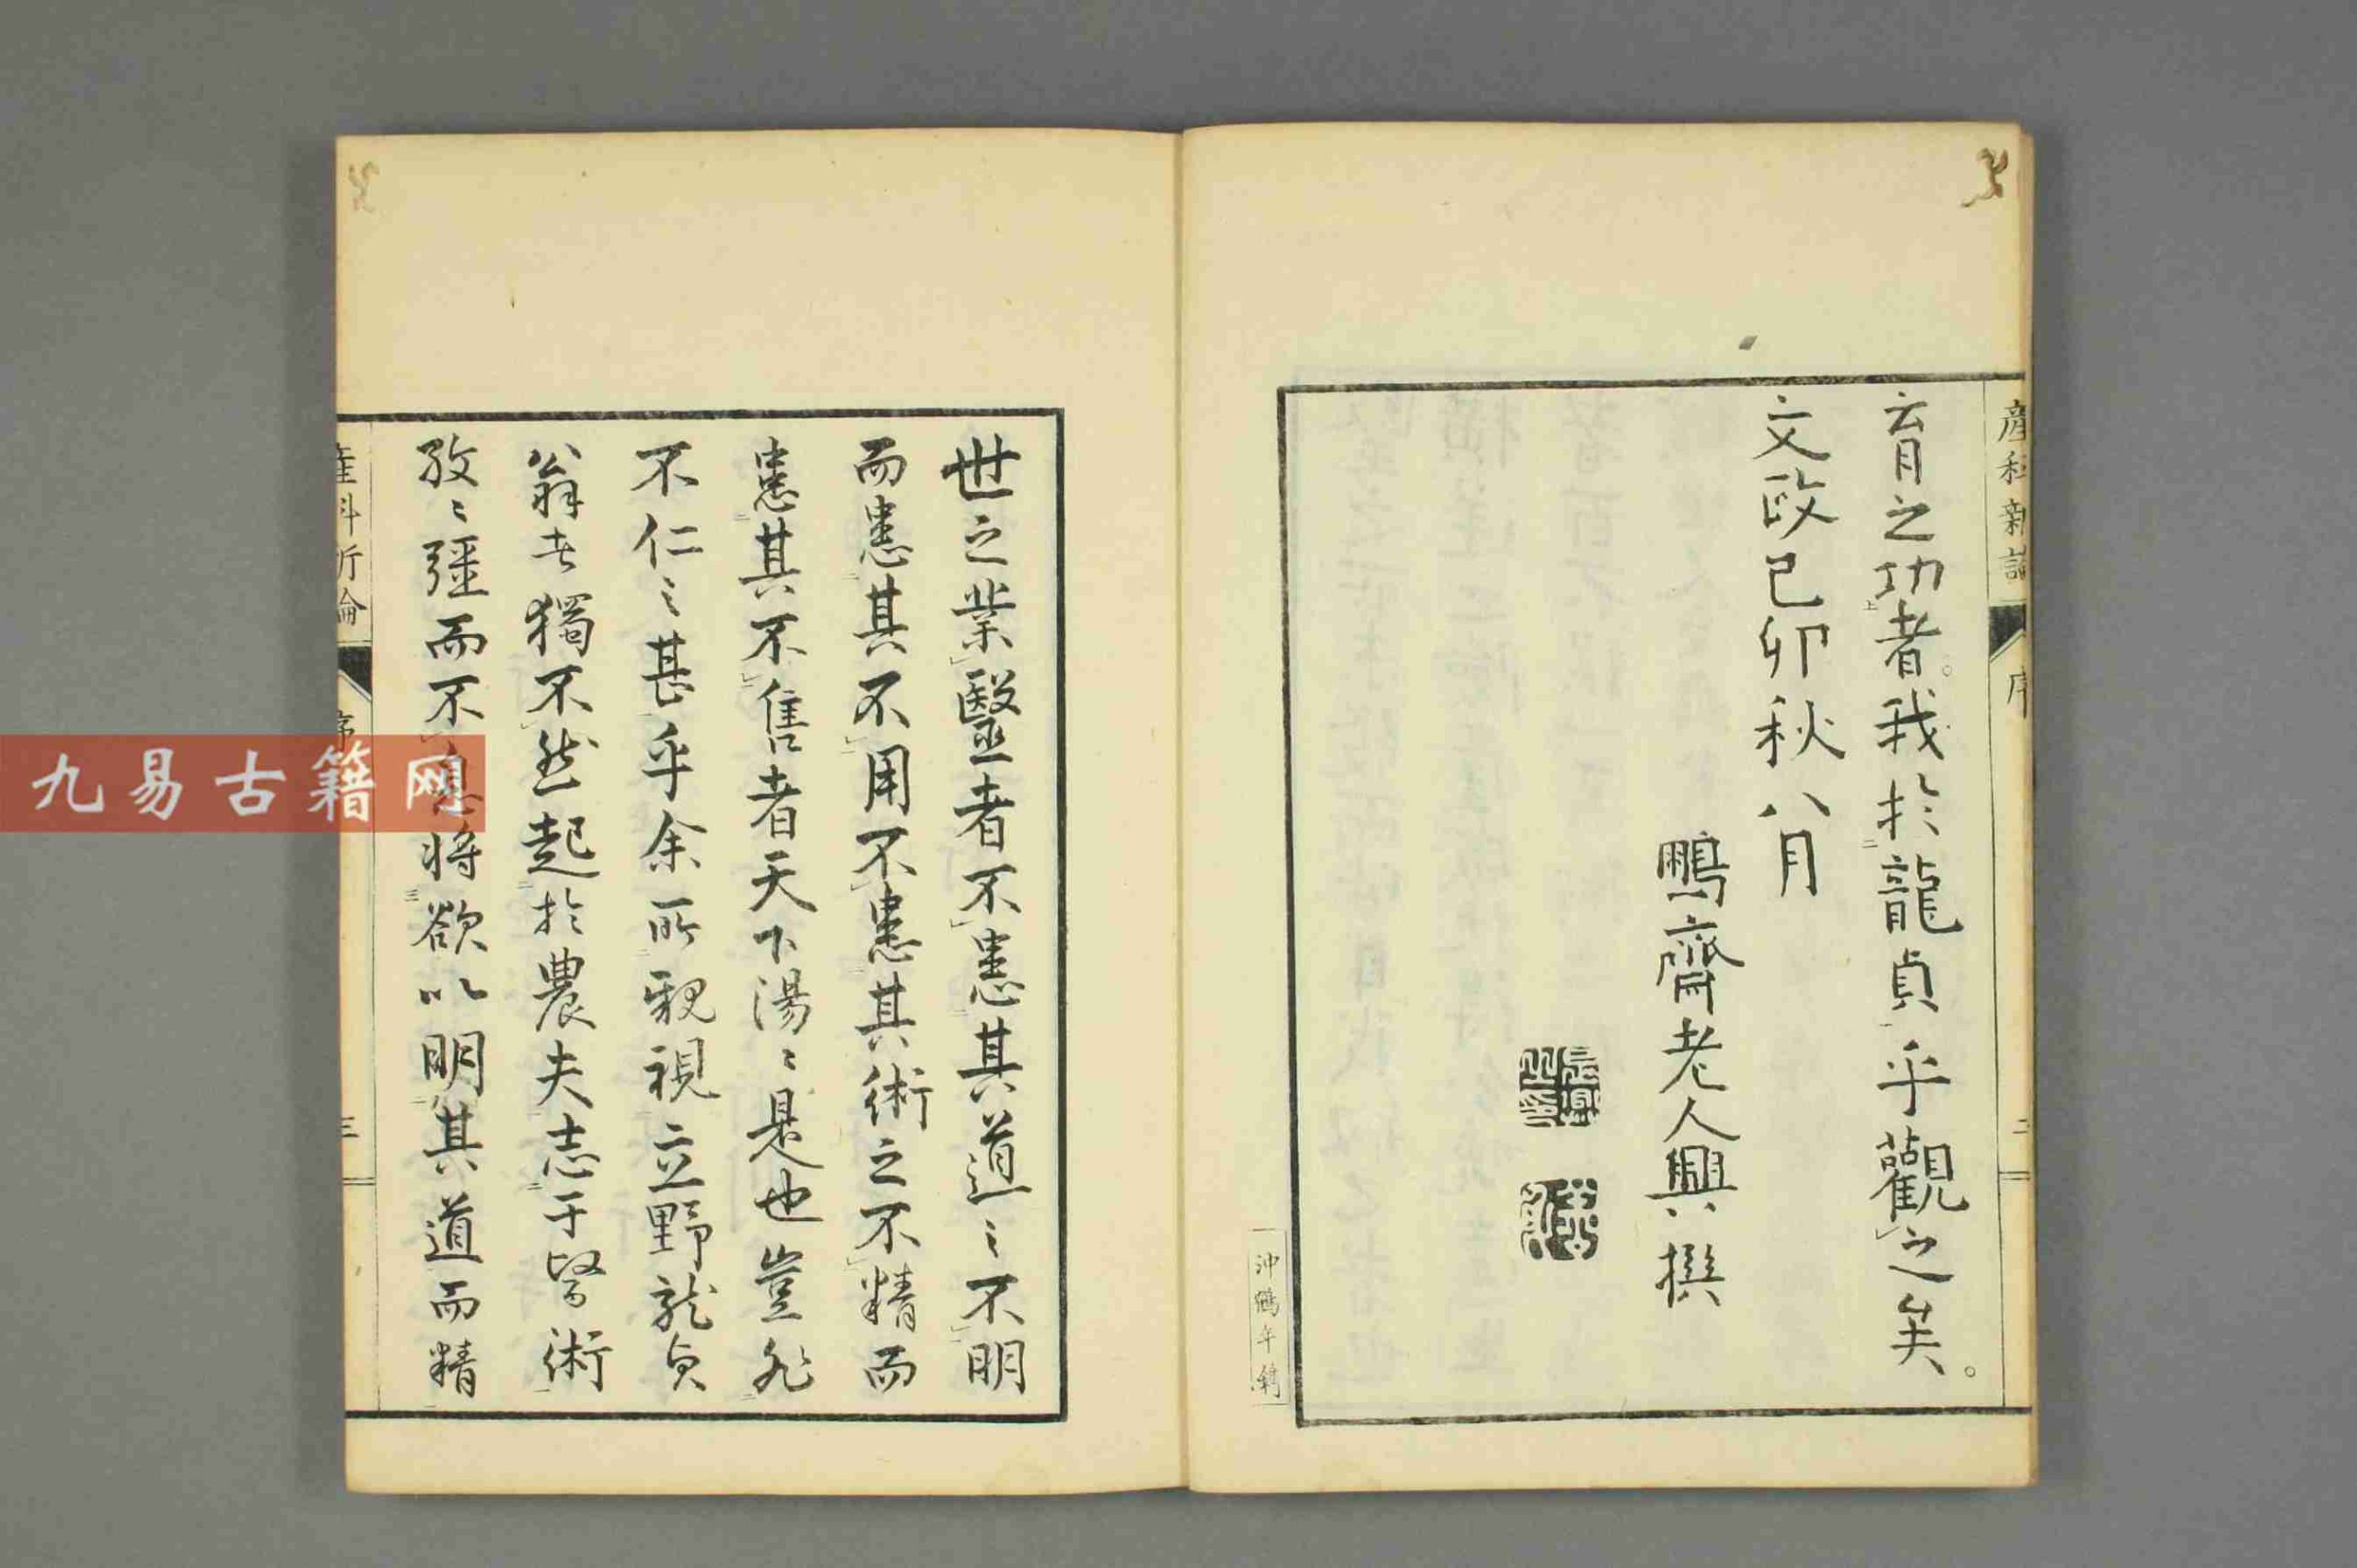 産科新論
序
二
育之功者。我於龍貞乎觀之矣。
文政己卯秋八月
鵬齋老人興撰
冲鶴年鐫
世之業毉者不患其道〻不明
而患其不用不患其術之不精而
患其不售者天下湯〻是也豈非
不仁〻甚乎余所親視立野龍貞
翁者獨不然起於農夫志于醫術
孜〻彊而不息將欲以明其道而精
産科新論
序
三
九易古籍网